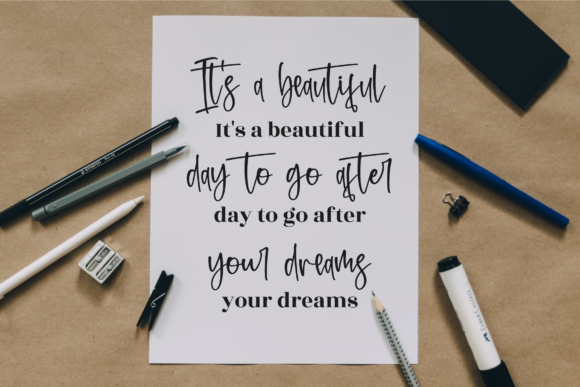 It's a beautiful
It's a beautiful
day to go after
day to go after
your dreams
your dreams